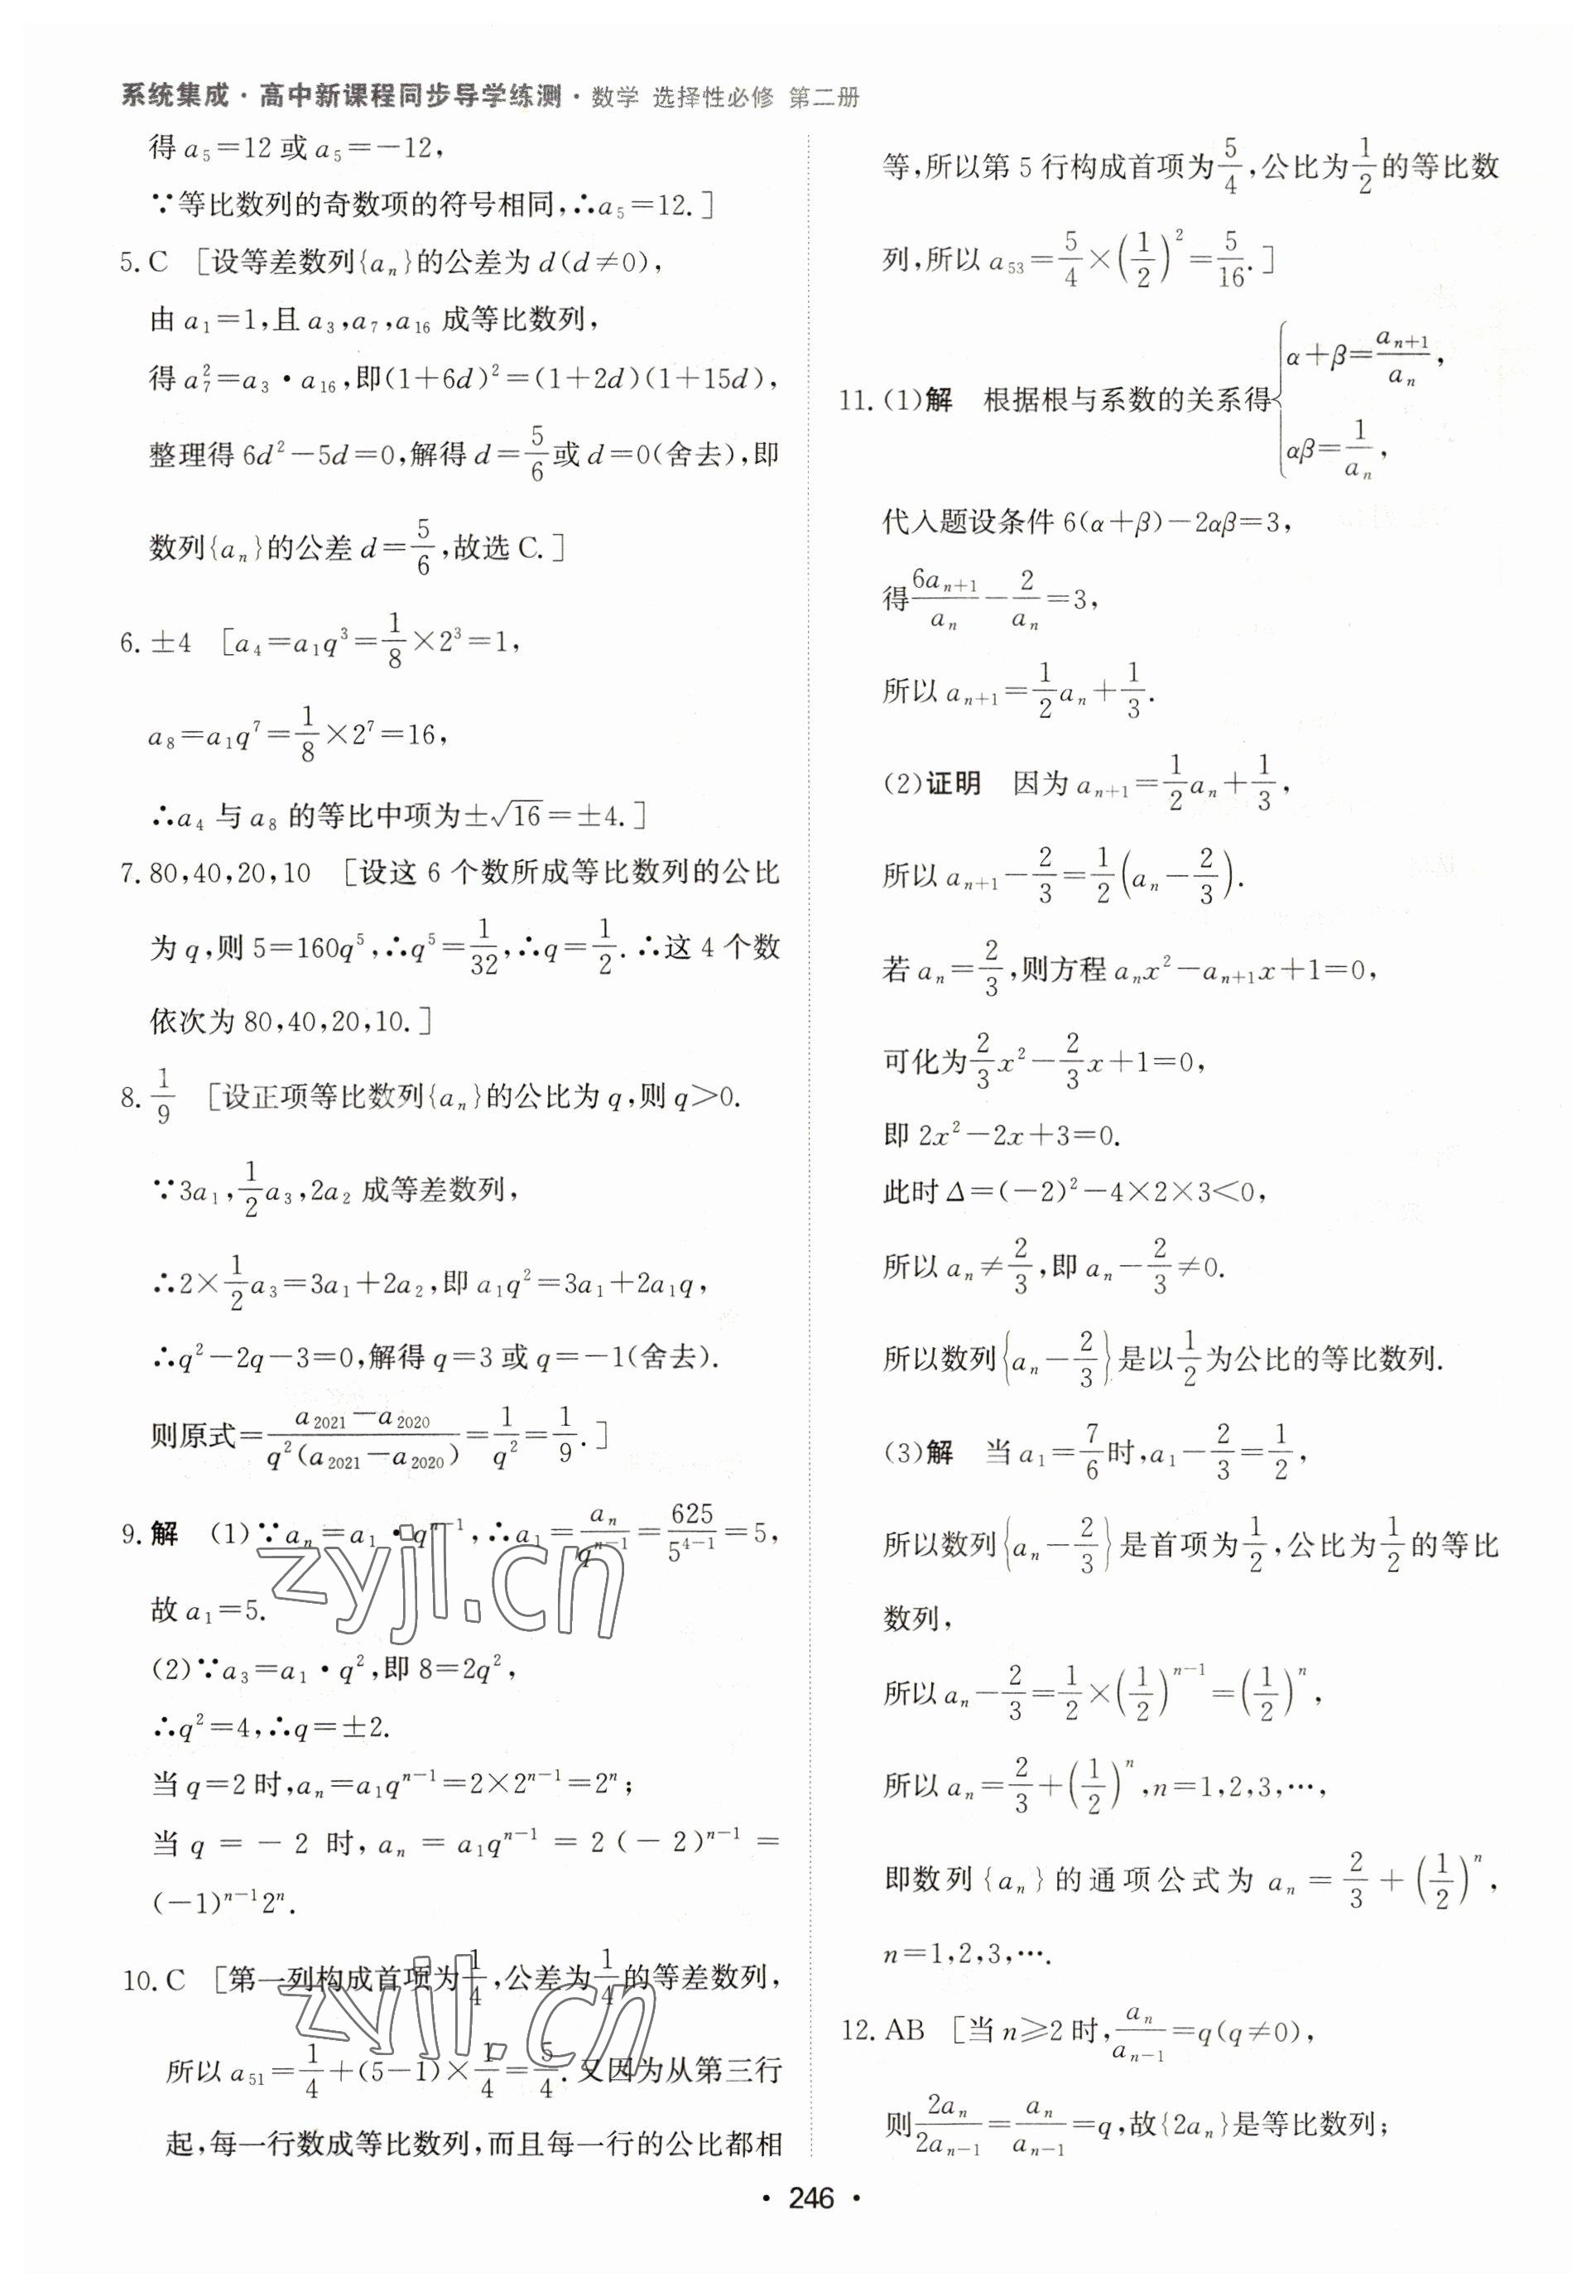 系统集成·高中新课程同步导学练测·数学 选择性必修 第二册
得 a₅=12 或 a₅=−12,
∵等比数列的奇数项的符号相同,∴a₅=12.]
5. C [设等差数列{aₙ}的公差为 d(d≠0),
由 a₁=1,且 a₃,a₇,a₁₆ 成等比数列,
得 a₇²=a₃·a₁₆,即(1+6d)²=(1+2d)(1+15d),
整理得 6d²−5d=0,解得 d=5/6或 d=0(舍去),即
数列{aₙ}的公差 d=5/6,故选 C.]
6. ±4 [a₄=a₁q³=1/8×2³=1,
a₈=a₁q⁷=1/8×2⁷=16,
∴a₄ 与 a₈ 的等比中项为±√16=±4.]
7. 80,40,20,10 [设这 6 个数所成等比数列的公比
为 q,则 5=160q⁵,∴q⁵=1/32,∴q=1/2.∴这 4 个数
依次为 80,40,20,10.]
8. 1/9 [设正项等比数列{aₙ}的公比为 q,则 q>0.
∵3a₁,1/2a₃,2a₂ 成等差数列,
∴2×1/2a₃=3a₁+2a₂,即 a₁q²=3a₁+2a₁q,
∴q²−2q−3=0,解得 q=3 或 q=−1(舍去).
则原式=(a₂₀₂₁−a₂₀₂₀)/(q²(a₂₀₂₁−a₂₀₂₀))=1/q²=1/9.]
9. 解 (1)∵aₙ=a₁·qⁿ⁻¹,∴a₁=aₙ/qⁿ⁻¹=625/5⁴⁻¹=5,
故 a₁=5.
(2)∵a₃=a₁·q²,即 8=2q²,
∴q²=4,∴q=±2.
当 q=2 时,aₙ=a₁qⁿ⁻¹=2×2ⁿ⁻¹=2ⁿ;
当 q=−2 时,aₙ=a₁qⁿ⁻¹=2(−2)ⁿ⁻¹=
(−1)ⁿ⁻¹2ⁿ.
10. C [第一列构成首项为1/4,公差为1/4的等差数列,
所以 a₅₁=1/4+(5−1)×1/4=5/4.又因为从第三行
起,每一行数成等比数列,而且每一行的公比都相
等,所以第 5 行构成首项为5/4,公比为1/2的等比数
列,所以 a₅₃=5/4×(1/2)²=5/16.]
11. (1)解 根据根与系数的关系得{α+β=aₙ₊₁/aₙ,
αβ=1/aₙ,
代入题设条件 6(α+β)−2αβ=3,
得6aₙ₊₁/aₙ−2/aₙ=3,
所以 aₙ₊₁=1/2aₙ+1/3.
(2)证明 因为 aₙ₊₁=1/2aₙ+1/3,
所以 aₙ₊₁−2/3=1/2(aₙ−2/3).
若 aₙ=2/3,则方程 aₙx²−aₙ₊₁x+1=0,
可化为2/3x²−2/3x+1=0,
即 2x²−2x+3=0.
此时 Δ=(−2)²−4×2×3<0,
所以 aₙ≠2/3,即 aₙ−2/3≠0.
所以数列{aₙ−2/3}是以1/2为公比的等比数列.
(3)解 当 a₁=7/6时,a₁−2/3=1/2,
所以数列{aₙ−2/3}是首项为1/2,公比为1/2的等比
数列,
所以 aₙ−2/3=1/2×(1/2)ⁿ⁻¹=(1/2)ⁿ,
所以 aₙ=2/3+(1/2)ⁿ,n=1,2,3,…,
即数列{aₙ}的通项公式为 aₙ=2/3+(1/2)ⁿ,
n=1,2,3,….
12. AB [当 n≥2 时,aₙ/aₙ₋₁=q(q≠0),
则2aₙ/2aₙ₋₁=aₙ/aₙ₋₁=q,故{2aₙ}是等比数列;
·246·
zyjl.cn
zyjl.cn